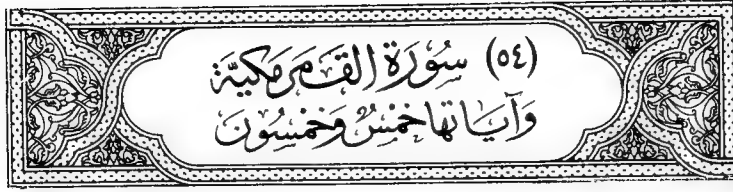 (٥٤) سُوْرَة القَمَر مَكيَّة
وَآيَاتها خَمسٌ وَخَمْسُونَ